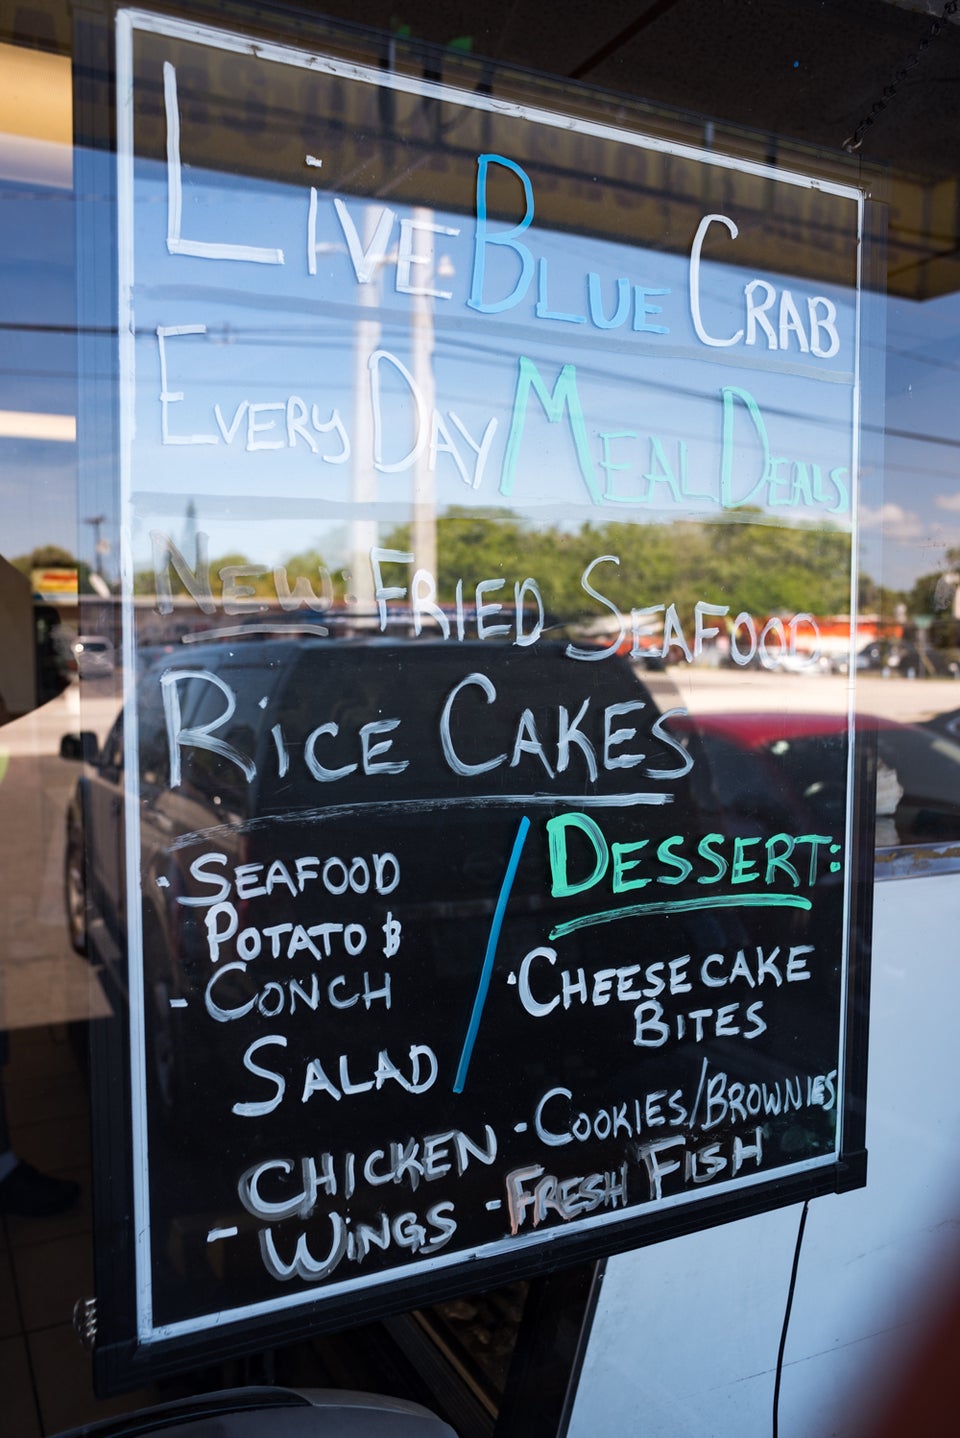 Live Blue Crab
Every Day Meal Deals
New: Fried Seafood
Rice Cakes
· Seafood
Potato $
- Conch
Salad
Chicken
- Wings
/
Dessert:
· Cheesecake
Bites
- Cookies/Brownies
- Fresh Fish